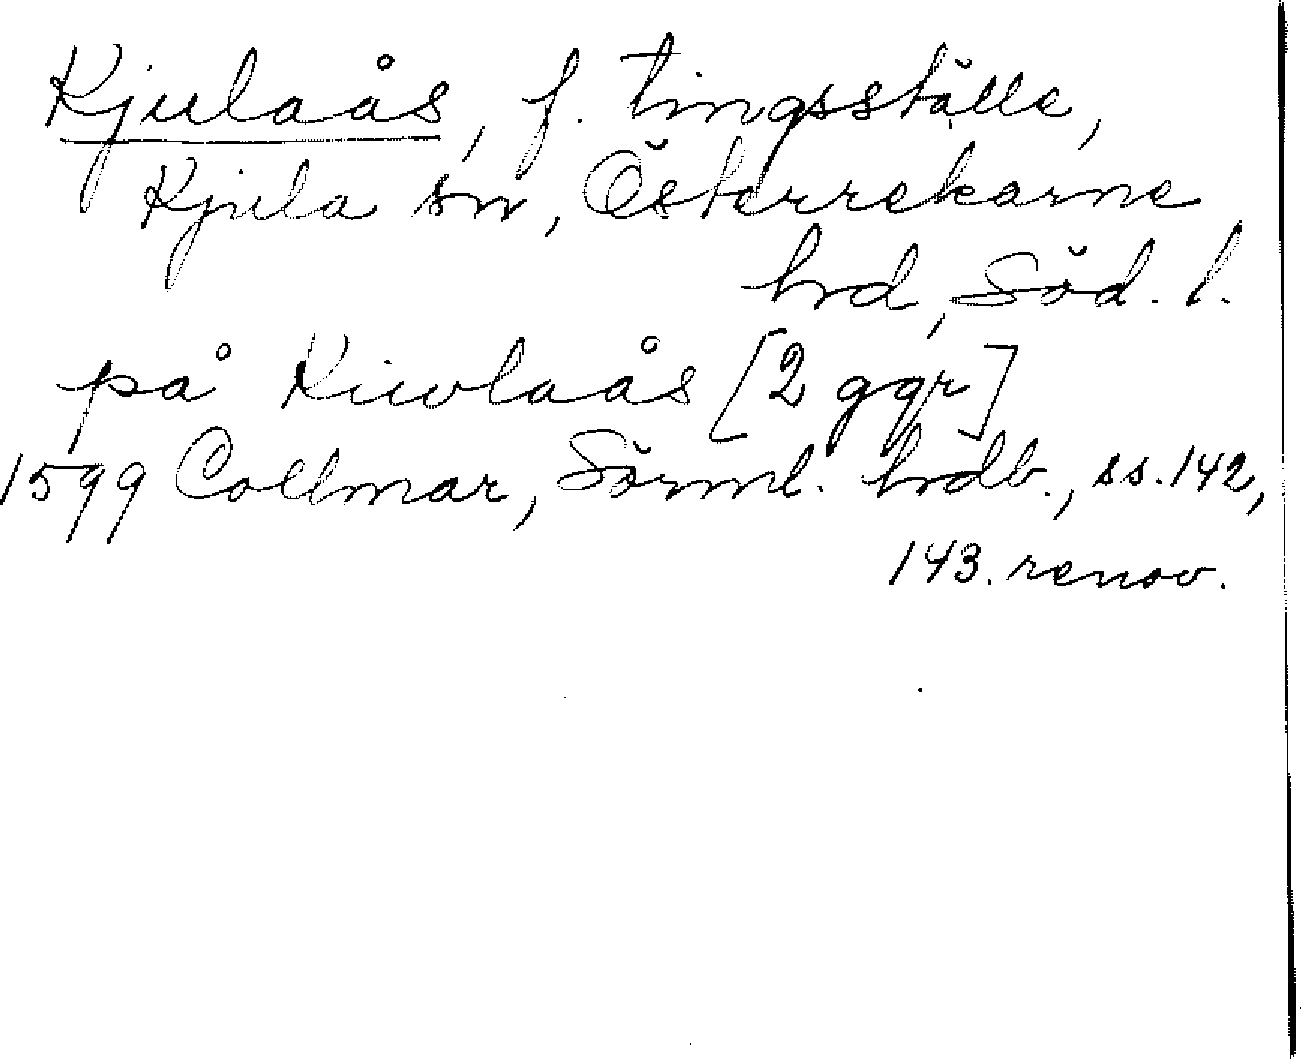 Kjulaås, f. tingsställe,
Kjula sn, Österrekarne
hrd, Söd. l.
på Kiwlaås [2 ggr]
1599 Collmar, Sörml. hrdb., ss. 142,
143. renov.